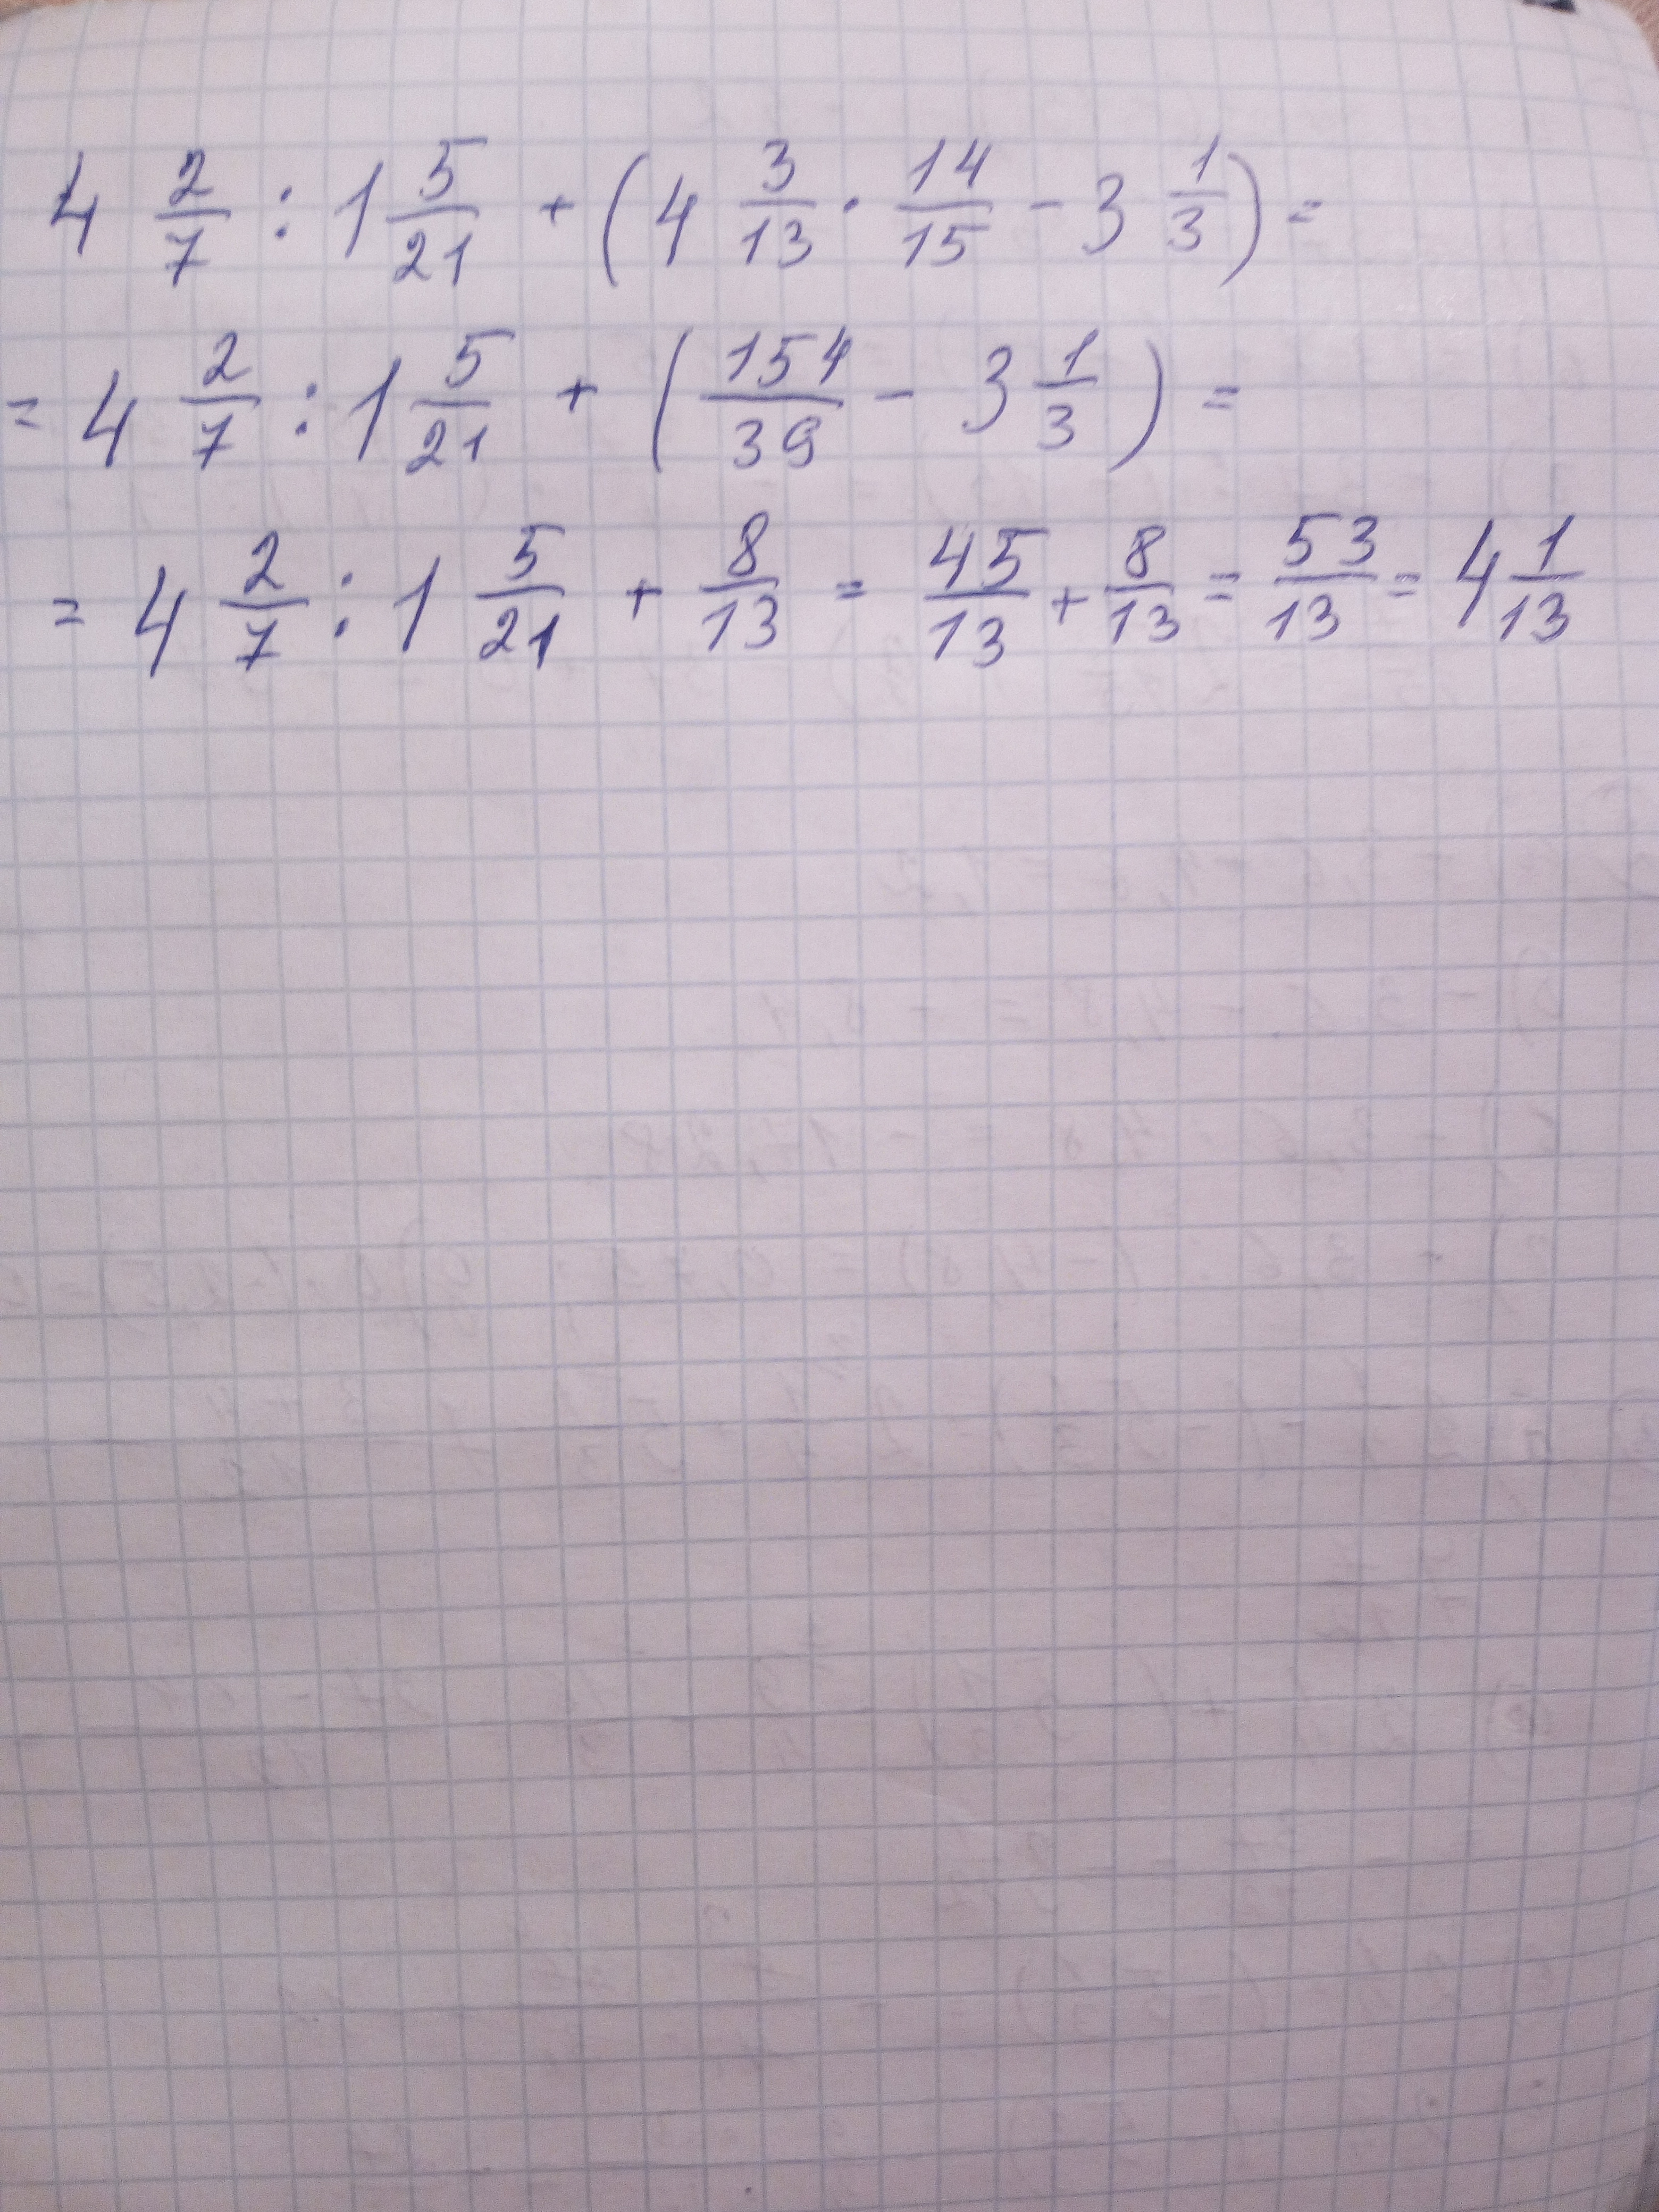 4 2/7 : 1 5/21 + (4 3/13 · 14/15 - 3 1/3) =
= 4 2/7 : 1 5/21 + (154/39 - 3 1/3) =
= 4 2/7 : 1 5/21 + 8/13 = 45/13 + 8/13 = 53/13 = 4 1/13